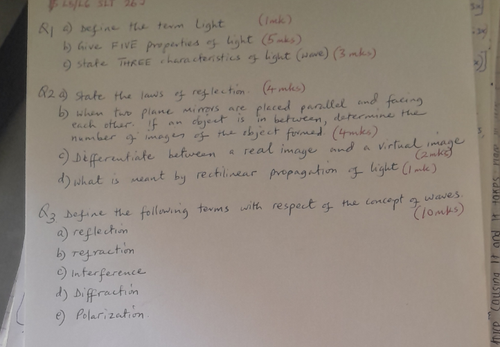 Q1 a) Define the term light (1mk)
b) Give FIVE properties of light (5mks)
c) State THREE characteristics of light (wave) (3mks)
Q2 a) State the laws of reflection. (4mks)
b) When two plane mirrors are placed parallel and facing
each other. If an object is in between, determine the
number of images of the object formed. (4mks)
c) Differentiate between a real image and a virtual image
(2mks)
d) What is meant by rectilinear propagation of light (1mk)
Q3 Define the following terms with respect of the concept of waves.
(10mks)
a) reflection
b) refraction
c) Interference
d) Diffraction
e) Polarization